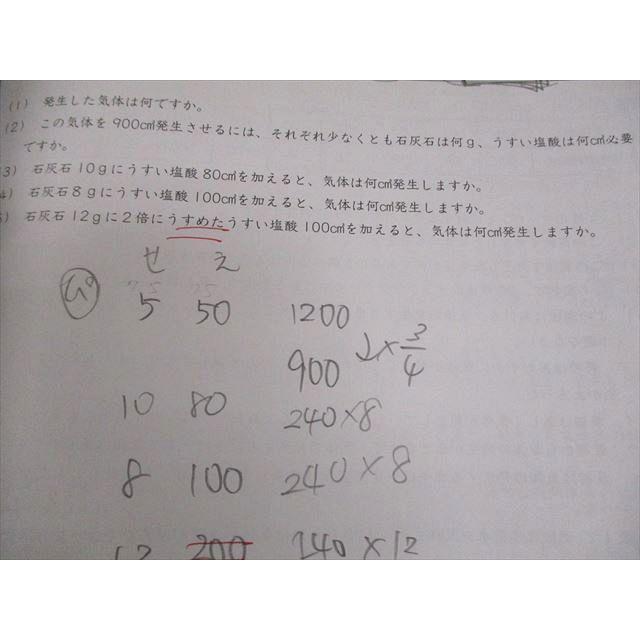 (1) 発生した気体は何ですか。
(2) この気体を900cm³発生させるには、それぞれ少なくとも石灰石は何g、うすい塩酸は何cm³必要
ですか。
3) 石灰石10gにうすい塩酸80cm³を加えると、気体は何cm³発生しますか。
4) 石灰石8gにうすい塩酸100cm³を加えると、気体は何cm³発生しますか。
) 石灰石12gに2倍にうすめたうすい塩酸100cm³を加えると、気体は何cm³発生しますか。
せ え
5 50 1200
900 ×3/4
10 80 240×8
8 100 240×8
12 200 140×12